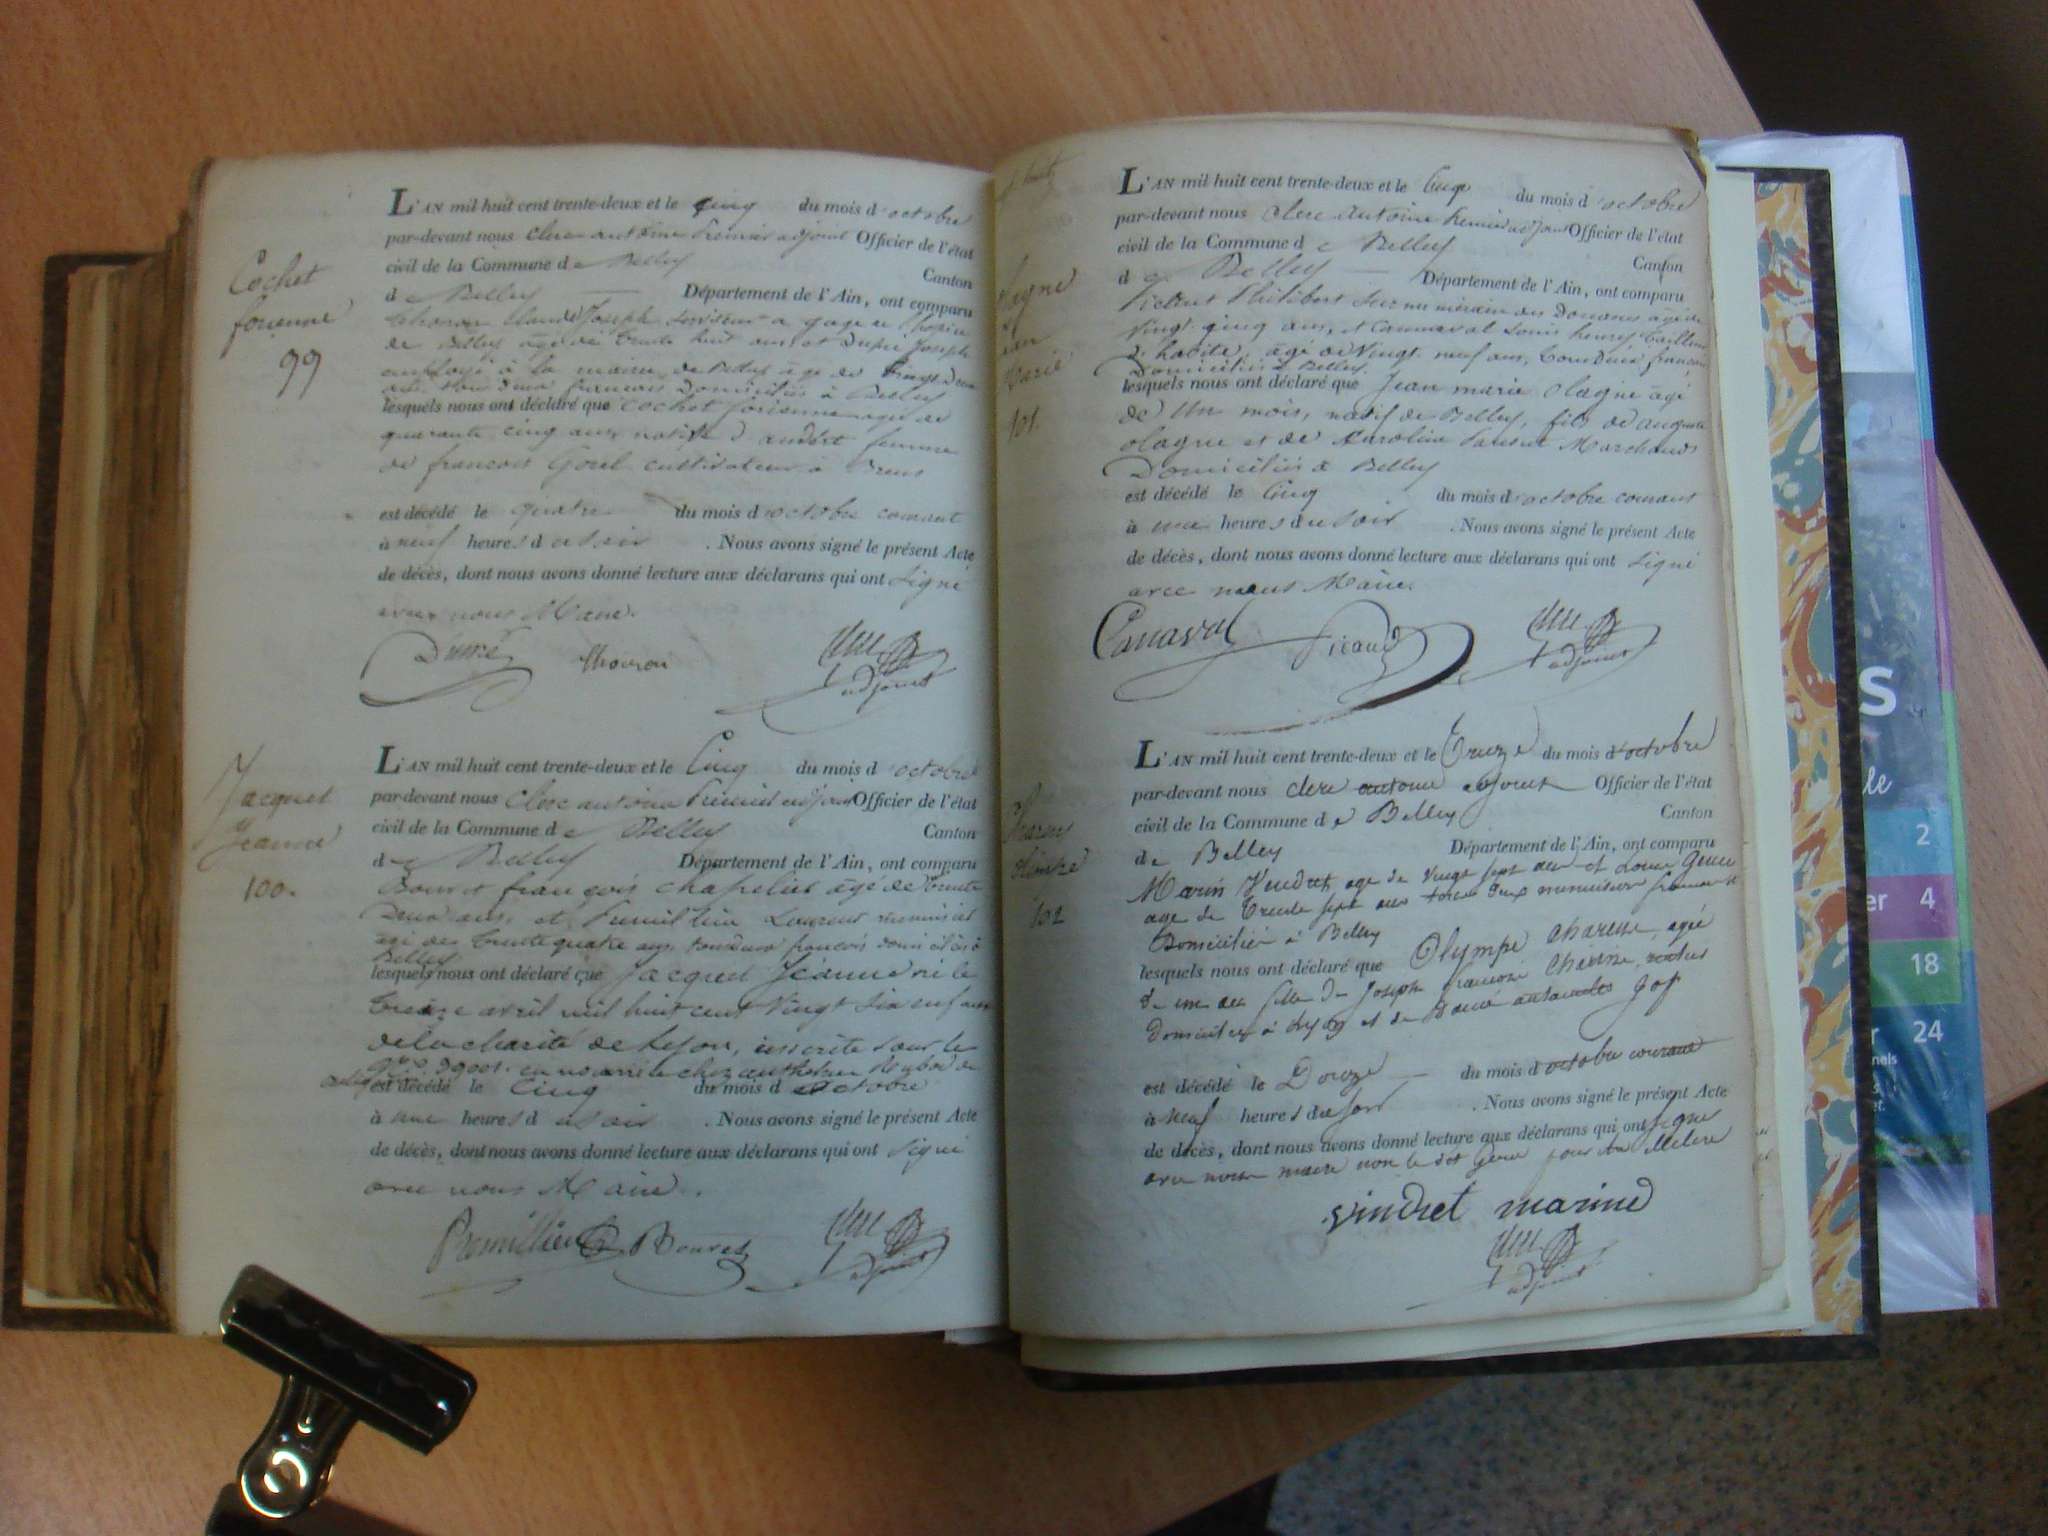 Cochet
99
L'AN mil huit cent trente-deux et le cinq du mois d'octobre
par-devant nous clerc antoine Premier adjoint Officier de l'état
civil de la Commune de Belley Canton
de Belley Département de l'Ain, ont comparu
Claude Joseph a gage
de Belley age de trente huit ans et Dupré Joseph
employé à la mairie de Belley âgé de
tous deux francais Domiciliés à Belley
lesquels nous ont déclaré que Cochet agée de
quarante cinq ans, native d'andert femme
de francois cultivateur à
est décédé le quatre du mois d'octobre courant
à neuf heures du soir . Nous avons signé le présent Acte
de décès, dont nous avons donné lecture aux déclarans qui ont signé
avec nous Maire.
adjoint
Jacquet
Jeanne
100.
L'AN mil huit cent trente-deux et le Cinq du mois d'octobre
par-devant nous Clerc antoine Premier adjoint Officier de l'état
civil de la Commune de Belley Canton
de Belley Département de l'Ain, ont comparu
Bouvet françois chapelier âgé de trente
Deux ans, et Laurent menuisier
âgé de trente quatre ans tous deux francois domiciliés à
Belley
lesquels nous ont déclaré que Jacquet Jeanne né le
treize avril mil huit cent vingt six enfant
de la charité de Lyon, inscrite sous le
en nourrice chez
est décédé le Cinq du mois d'octobre
à une heures du soir . Nous avons signé le présent Acte
de décès, dont nous avons donné lecture aux déclarans qui ont signé
avec nous Maire.
Bouvet
adjoint
101.
L'AN mil huit cent trente-deux et le Cinq du mois d'octobre
par-devant nous Clerc Antoine Premier adjoint Officier de l'état
civil de la Commune de Belley Canton
de Belley Département de l'Ain, ont comparu
Philibert des Douanes âgé de
vingt cinq ans, et Cannaval Louis henry tailleur
d'habits, âgé de vingt neuf ans, tous deux francais
Domiciliés à Belley
lesquels nous ont déclaré que Jean marie Olagne âgé
de un mois, natif de Belley, fils de auguste
olagne et de Caroline Marchands
Domiciliés à Belley
est décédé le Cinq du mois d'octobre courant
à une heures du soir . Nous avons signé le présent Acte
de décès, dont nous avons donné lecture aux déclarans qui ont signé
avec nous Maire.
Canaval
adjoint
102
L'AN mil huit cent trente-deux et le Treize du mois d'octobre
par-devant nous clerc antoine adjoint Officier de l'état
civil de la Commune de Belley Canton
de Belley Département de l'Ain, ont comparu
Marin Vindret, age de vingt sept ans et
age de trente sept ans tous deux menuisier
Domiciliés à Belley
lesquels nous ont déclaré que Olympe agée
de un an fille de Joseph francois
Domiciliés à Lyon et de
est décédé le Douze du mois d'octobre courant
à neuf heures du soir . Nous avons signé le présent Acte
de décès, dont nous avons donné lecture aux déclarans qui ont signé
avec nous maire non le dit
vindret marine
adjoint
s
2
er 4
18
r 24